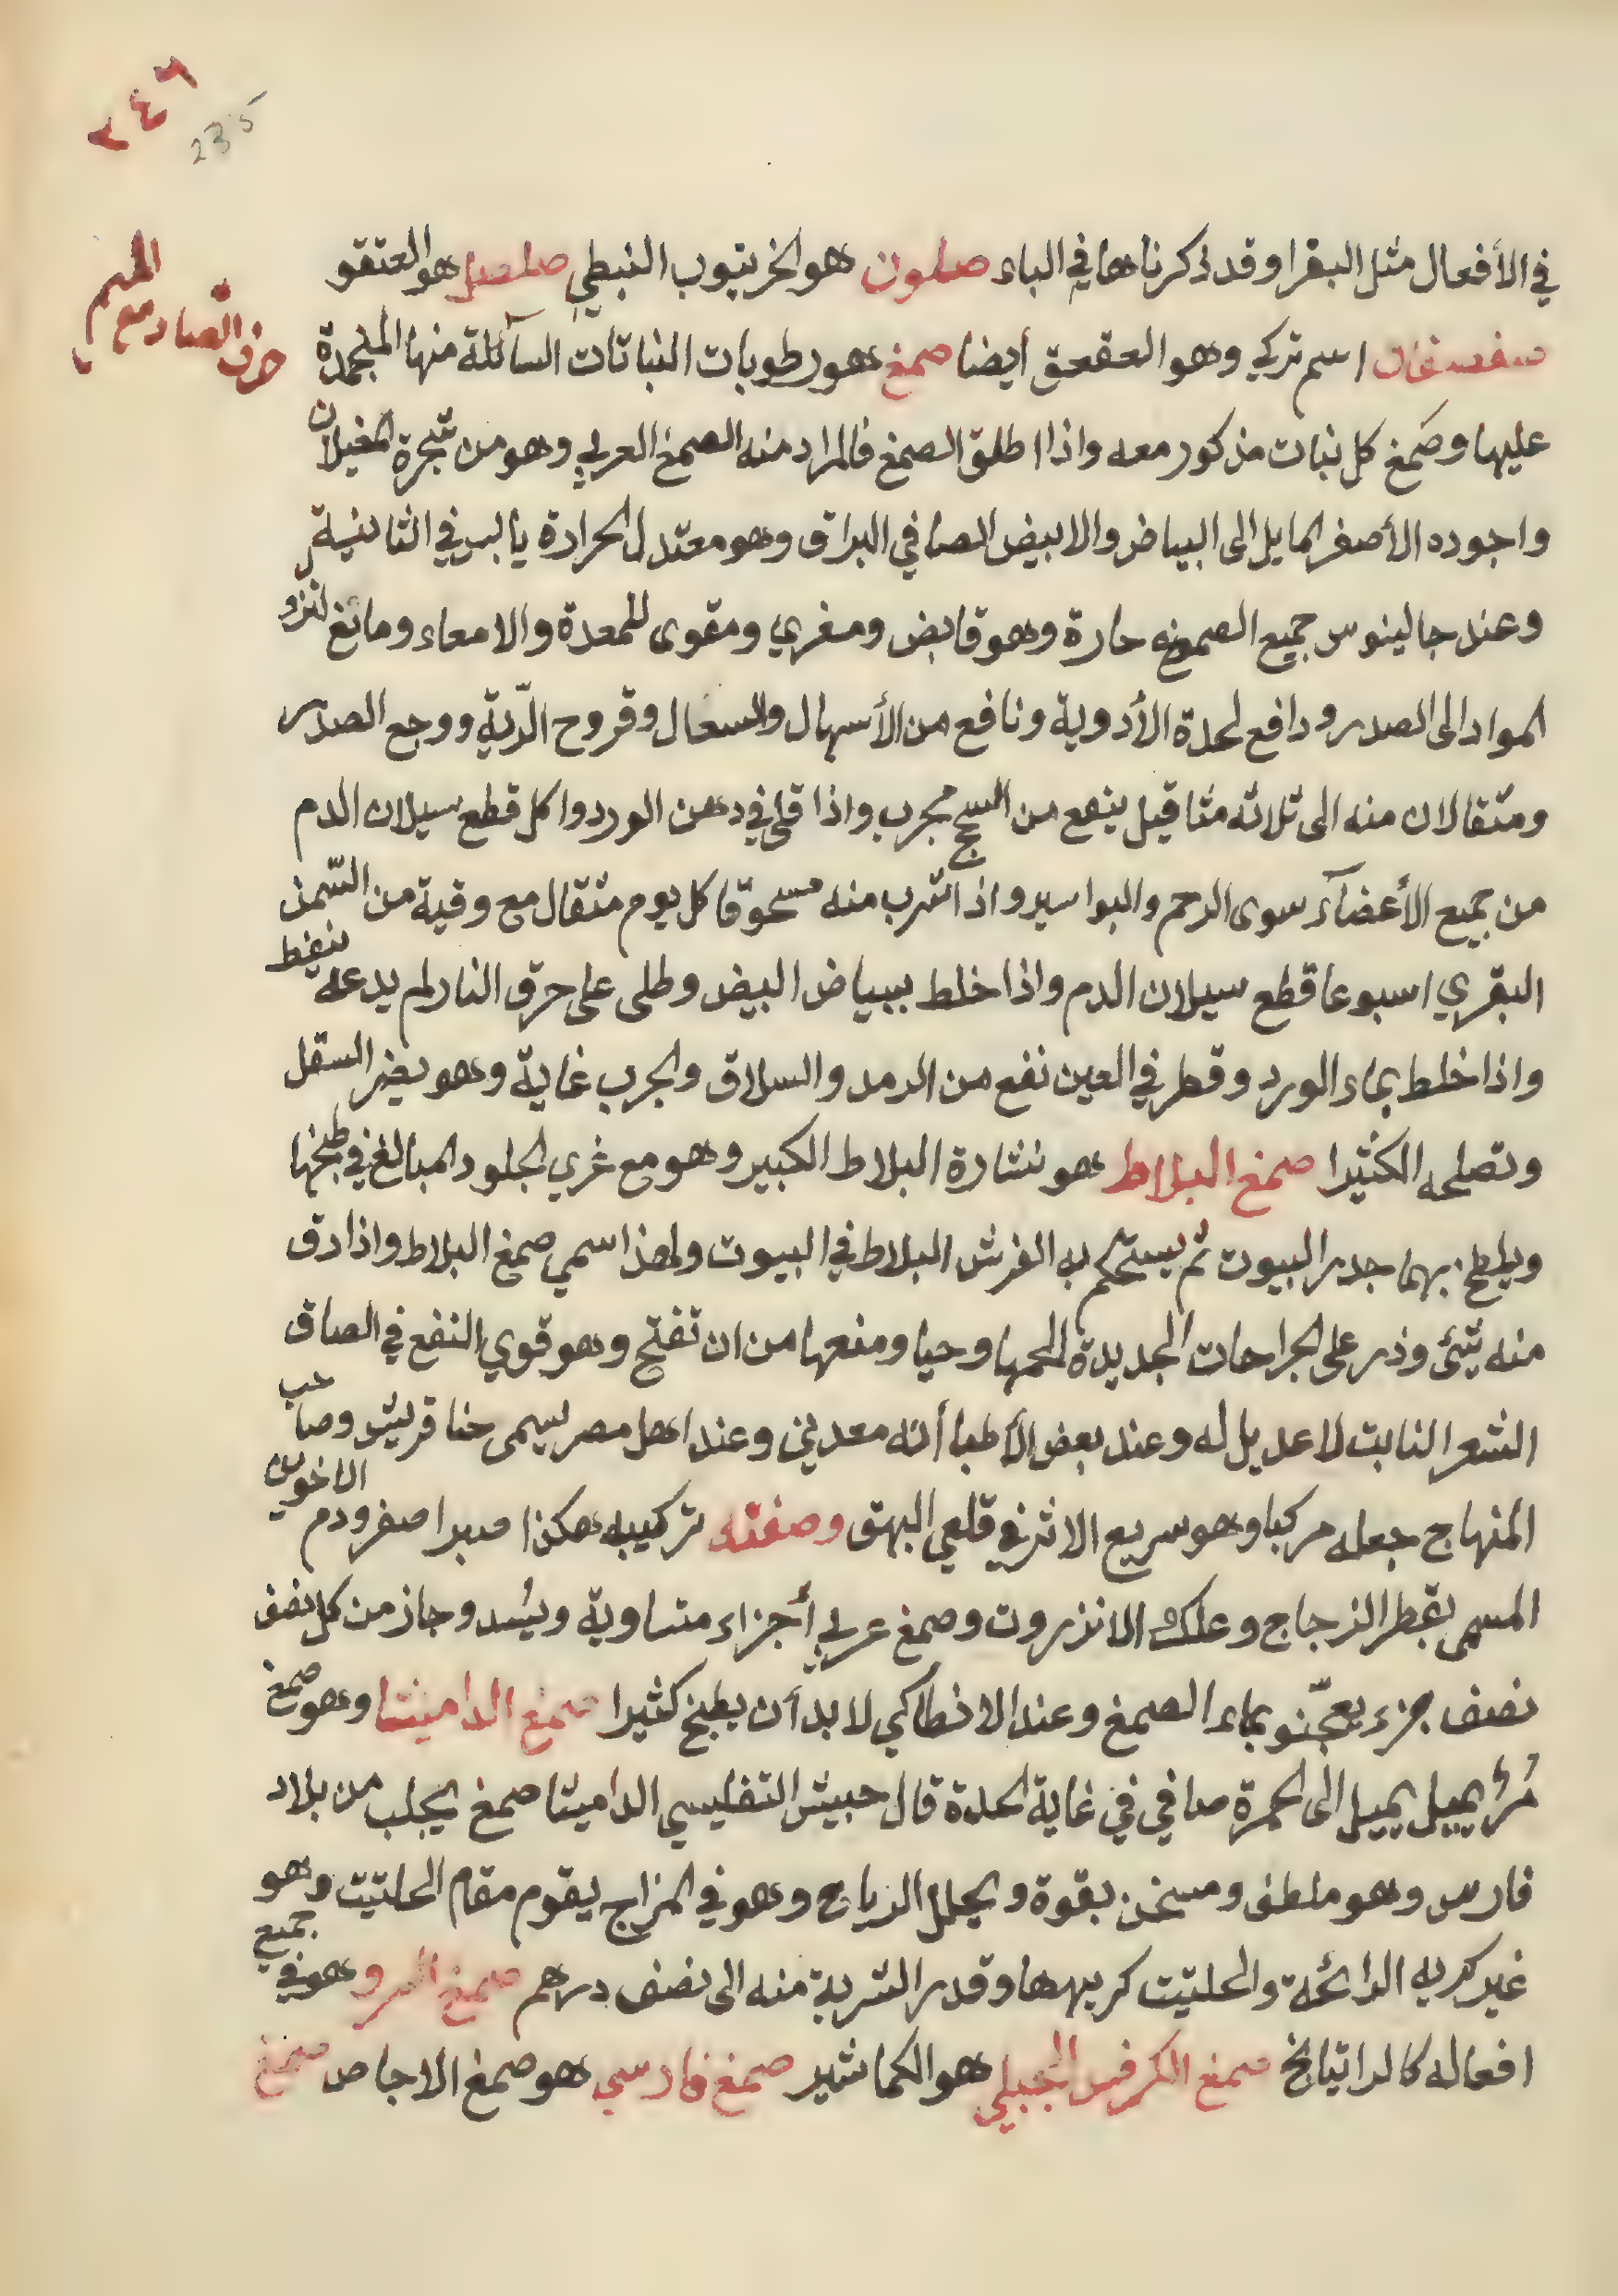 ٢٤٦
235
حرف الصاد مع الميم
في الأفعال مثل البقرا وقد ذكرناها في الباء صلون هو الخرنوب النبطي صلصل هو العتقو
صفصفان اسم تركي وهو العقعق أيضا صمغ هو رطوبات النباتات السآئلة منها المنجمدة
عليها وصمغ كل نبات مذكور معه واذا اطلق الصمغ فالمراد منه الصمغ العربي وهو من شجرة المغيلان
واجوده الأصفر المايل الى البياض والابيض الصافي البراق وهو معتدل الحرارة يابس في الثانية
وعند جالينوس جميع الصموغ حارة وهو قابض ومغري ومقوى للمعدة والامعاء ومانع لنزو
المواد الى الصدر ودافع لحدة الأدوية ونافع من الأسهال والسعال وقروح الرّية ووجع الصدر
ومثقالان منه الى ثلاثه مثاقيل ينفع من السحج مجرب واذا قلي في دهن الورد واكل قطع سيلان الدم
من جميع الأعضآء سوى الرحم والبواسير واذا شرب منه مسحوقا كل يوم مثقال مع وقية من السّمن
البقري اسبوعا قطع سيلان الدم واذا خلط ببياض البيض وطلى على حرق النار لم يدعه ينفط
واذا خلط بماء الورد وقطر في العين نفع من الرمد والسلاق والجرب غاية وهو يضر السفل
وتصلحه الكثيرا صمغ البلاط هو نشارة البلاط الكبير وهو مع غري الجلود المبالغ في طبخها
ويلطخ بهما جدر البيوت ثم يستحكم به الفرش البلاط في البيوت ولهذا سمي صمغ البلاط واذا دق
منه شئ وذر على الجراحات الجديدة المحمها وحيا ومنعها من ان تفتح وهو قوي النفع في الصاق
الشعر النابت لا عديل له وعند بعض الأطبا أنه معدني وعند اهل مصر يسمى حنا قريش وصاحب
المنهاج جعله مركبا وهو سريع الاثر في قلعي البهق وصفته تركيبه هكذا صبر اصفر ودم الاخوين
المسمى بقطر الزجاج وعلك الانزروت وصمغ عربي أجزاء متساوية ويُسد وجاز من كل نصف
نصف جزء يعجّنو بماء الصمغ وعند الانطاكي لا بد أن يطبخ كثيرا صمغ الداميثا وهو صمغ
مُرٌ يميل يميل الى الحمرة صافي في غاية الحدة قال حبيش التفليسي الداميثا صمغ يجلب من بلاد
فارس وهو ملطف ومسخن بقوة ويحلل الرياح وهو في المزاج يقوم مقام الحلتيت وهو
غير كريه الرائحة والحلتيت كريهها وقدر الشربة منه الى نصف درهم صمغ السرو وهو في جميع
افعاله كالراتيانخ صمغ الكرفس الجبلي هو الكماشير صمغ فارسي هو صمغ الاجاص صمغ